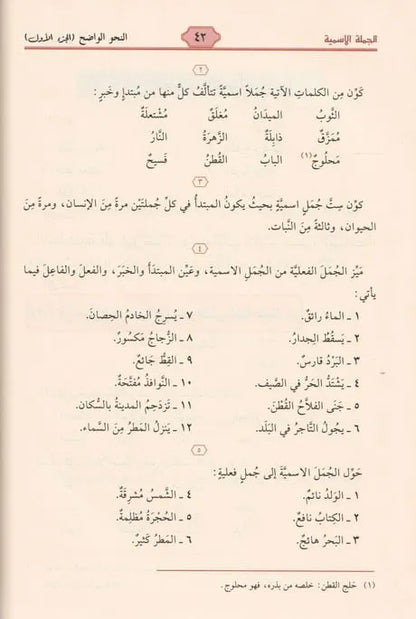 الجملة الاسمية ٤٢ النحو الواضح (الجزء الأول)
٢
كَوِّن مِن الكلماتِ الآتية جُمَلاً اسميَّةً تتألَّفُ كلٌّ منها من مُبتدإٍ وخَبرٍ:
الثَّوبُ الميدَانُ مُغلَقٌ مُشْتعلَةٌ
مُمَزَّقٌ ذابِلَةٌ الزَّهرَةُ النَّارُ
مَحلُوجٌ(١) البابُ القُطنُ فَسيحٌ
٣
كوِّن سِتَّ جُمَلٍ اسميَّةٍ بحيثُ يكونُ المبتدأُ في كلِّ جُملتَيْن مرةً مِنَ الإنسان، ومرةً مِنَ
الحيوان، وثالثةً مِنَ النَّبات.
٤
مَيِّز الجُمَلَ الفعليَّةَ من الجُمَلِ الاسمية، وعَيِّن المبتدَأَ والخبَرَ، والفعلَ والفاعِلَ فيما
يأتي:
١ ـ الماءُ رائقٌ.
٢ ـ يَسقُطُ الجِدارُ.
٣ ـ البَرْدُ قارسٌ.
٤ ـ يَشْتَدُّ الحَرُّ في الصَّيف.
٥ ـ جَنَى الفلاَّحُ القُطْنَ.
٦ ـ يجُولُ التَّاجرُ في البَلَد.
٧ ـ يُسرِجُ الخادمُ الحِصانَ.
٨ ـ الزُّجاجُ مَكسُورٌ.
٩ ـ القِطُّ جَائعٌ.
١٠ ـ النَّوافذُ مُفتَّحَةٌ.
١١ ـ تَزدَحِمُ المدينةُ بالسُّكان.
١٢ ـ يَنزِلُ المَطرُ مِنَ السَّماء.
٥
حَوِّل الجُمَلَ الاسميَّةَ إلى جُملٍ فعليةٍ:
١ ـ الوَلدُ نائمٌ.
٢ ـ الكِتابُ نافعٌ.
٣ ـ البَحرُ هائجٌ.
٤ ـ الشَّمسُ مُشرِقَةٌ.
٥ ـ الحُجْرَةُ مُظلِمةٌ.
٦ ـ المطَرُ كَثيرٌ.
(١) حَلج القطن: خلصه من بذره، فهو محلوج.